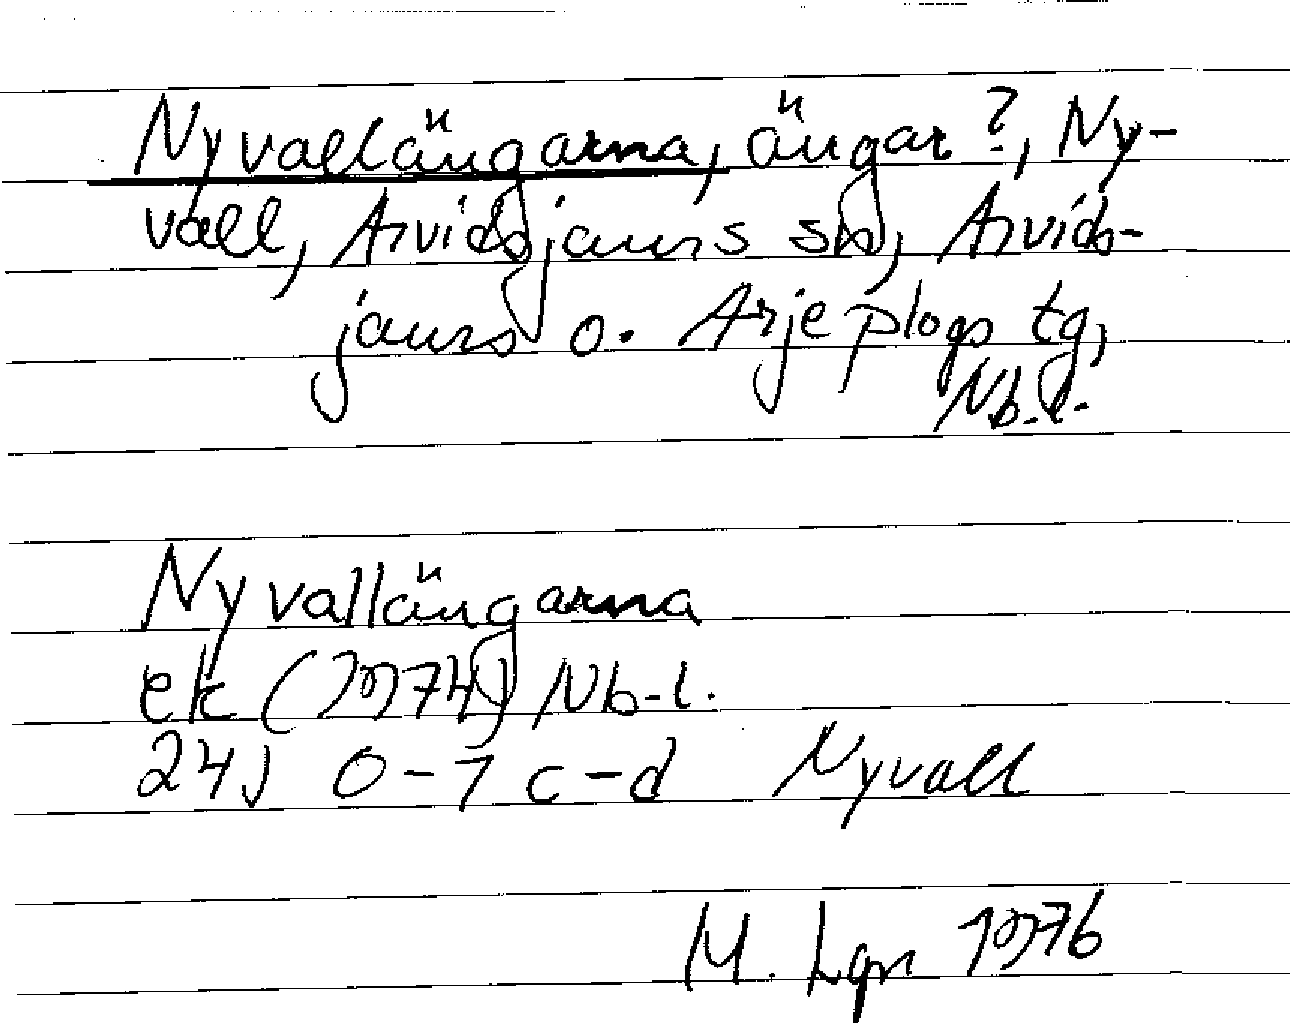 Nyvallängarna, ängar?, Ny-
vall, Arvidsjaurs sn, Arvids-
jaurs o. Arjeplogs tg,
Nb.l.
Nyvallängarna
ek (1974) Nb-l.
24J 0-1 c-d Nyvall
M. Lgn 1976